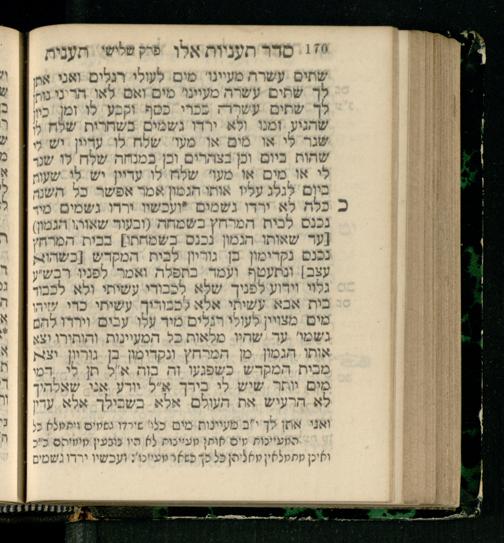 170 סדר תעניות אלו פרק שלישי תענית
שתים עשרה מעיינו' מים לעולי רגלים ואני אתן
לך שתים עשרה מעיינו' מים ואם לאו הריני נותן
לך שתים עשרה ככרי כסף וקבע לו זמן כיון
שהגיע זמנו ולא ירדו גשמים בשחרית שלח לו
שגר לי או מים או מעו' שלח לו עדיין יש לי
שהות ביום וכן בצהרים וכן במנחה שלח לו שגר
לי או מים או מעו' שלח לו עדיין יש לי שעות
ביום לגלג עליו אותו הגמון אמר אפשר כל השנה
כ כלה לא ירדו גשמים *ועכשיו ירדו גשמים מיד
נכנס לבית המרחץ בשמחה (ובעוד שאותו הגמון)
[עד שאותו הגמון נכנס בשמחתו] בבית המרחץ
נכנס נקדימון בן גוריון לבית המקדש [כשהוא
עצב] ונתעטף ועמד בתפלה ואמר לפניו רבש"ע
גלוי וידוע לפניך שלא לכבודי עשיתי ולא לכבוד
בית אבא עשיתי אלא לכבודיך עשיתי כדי שיהו
מים מצויין לעולי רגלים מיד עלו עבים וירדו להם
גשמי' עד שהיו מלאות כל המעיינות והותירו יצא
אותו הגמון מן המרחץ ונקדימון בן גוריון יצא
מבית המקדש כשפגעו זה בזה א"ל תן לי דמי
מים יותר שיש לי בידך א"ל יודע אני שאלהיך
לא הרעיש את העולם אלא בשבילך אלא עדין
ואני אתן לך י"ב מעיינות מים כלו' שירדו גשמים ויתמלא כל
המעיינות מים אותן מעיינות לא היו נובעין מימיהם כ"כ
ואינן מתמלאין מאליהן כל כך כשאר מעיינו': ועכשיו ירדו גשמים